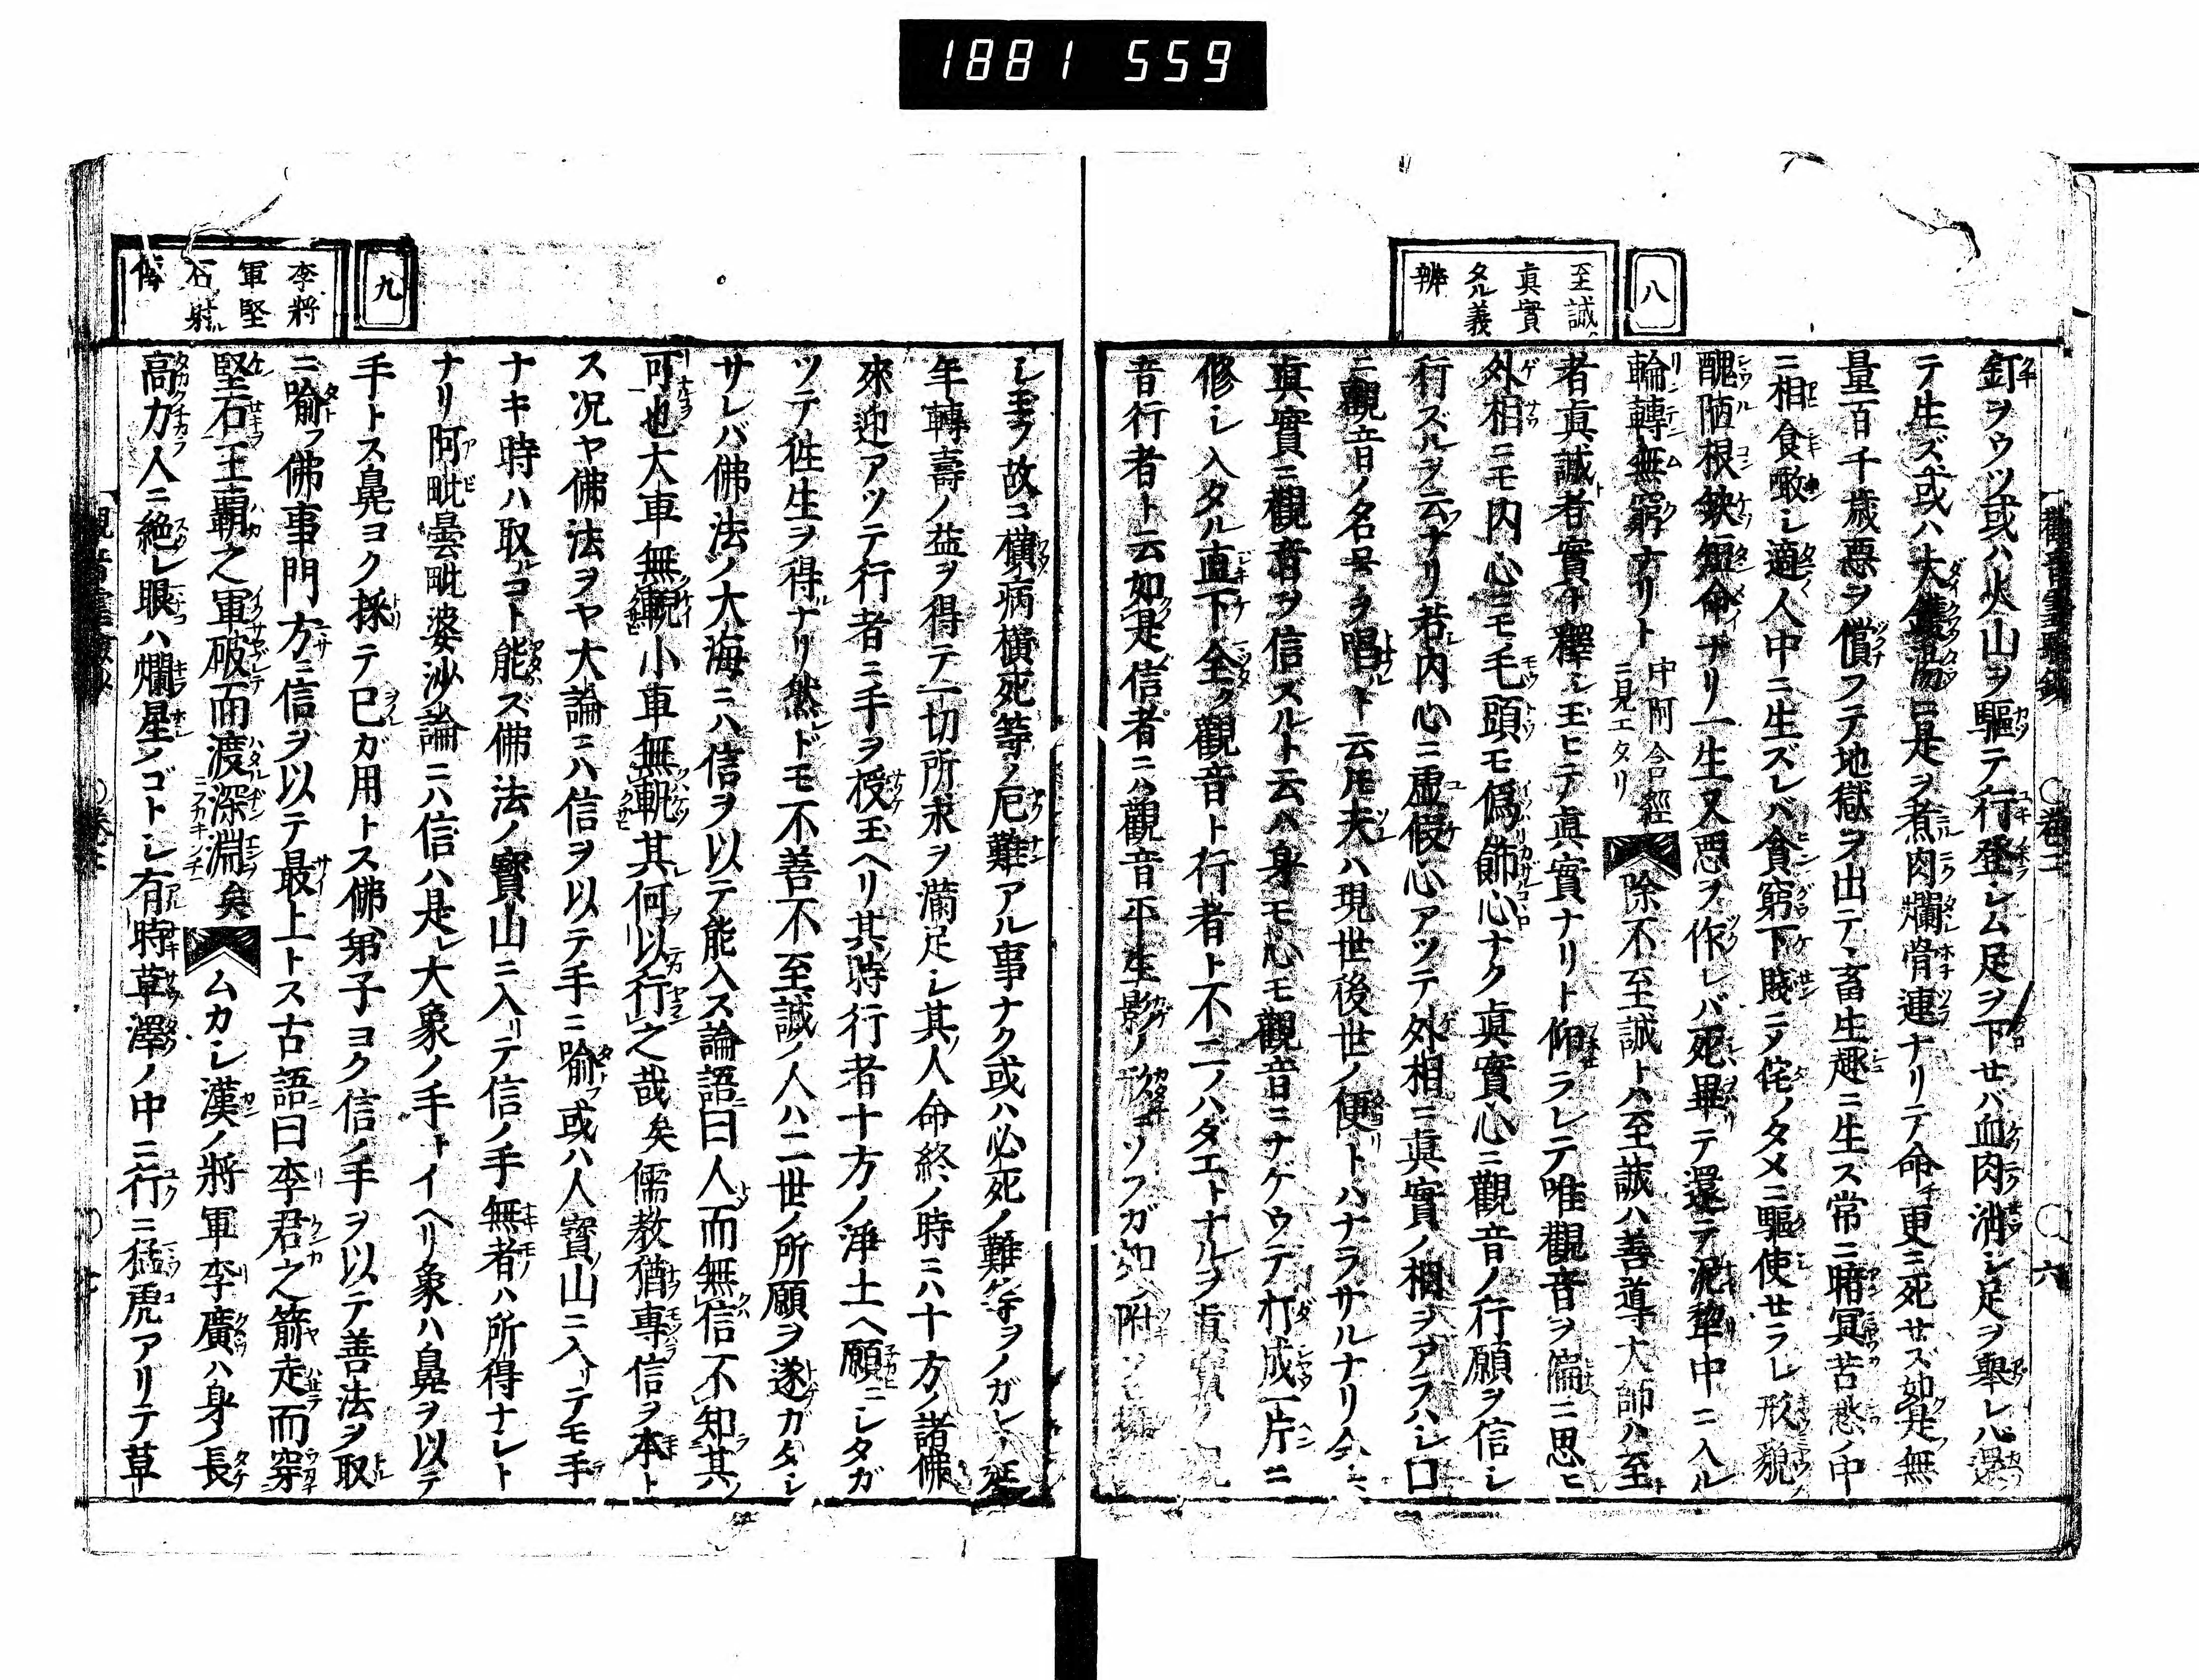 1881 559
八
至誠ハ
眞實
タル義
辨
釘ヲウツ或ハ火山ヲ驅テ行登シム足ヲ下セハ血肉消シ足ヲ舉レハ還
テ生ズ或ハ大鑊湯ニ是ヲ煮肉爛骨連ナリテ命更ニ死セズ如是無
量百千歳悪ヲ償フテ地獄ヲ出テ畜生趣ニ生ス常ニ暗冥苦愁ノ中
ニ相食噉シ適人中ニ生ズレバ貪窮下賤ニテ侘ノタメニ驅使セラレ形貌
醜陋根缺短命ナリ一生又悪ヲ作レバ死畢テ還テ泥犂中ニ入ル
輪轉無窮ナリト 中阿含經ニ見エタリ 除不至誠トハ至誠ハ善導大師ハ至
者眞誠者實ト釋シ玉ヒテ眞實ナリト仰ラレテ唯觀音ヲ偏ニ思ヒ
外相ニモ内心ニモ毛頭モ僞飾心ナク眞實心ニ觀音ノ行願ヲ信シ
行ズルヲ云ナリ若内心ニ虚假心アツテ外相ニ眞實ノ相ヲアラハシ口
ニ觀音ノ名号ヲ唱ト云𪜈夫ハ現世後世ノ便トハナラサルナリ今
眞實ニ觀音ヲ信スルト云ハ身モ心モ觀音ニナゲウテ打成一片ニ
修シ入タル直下全ク觀音ト行者ト不二ノハダエトナルヲ眞實ノ觀
音行者ト云如是信者ニハ觀音平生影ノ形ニソフガ如ク附
觀音靈驗鈔 ○卷二 ○六
シ玉フ故ニ横病横死等ノ厄難アル事ナク或ハ必死ノ難等ヲノガレ延
年轉壽ノ益ヲ得テ一切所求ヲ滿足シ其人命終ノ時ニハ十方ノ諸佛
來迎アツテ行者ニ手ヲ授玉ヘリ其時行者十方ノ淨土ヘ願ニシタガ
ツテ徃生ヲ得ナリ然レドモ不善不至誠ノ人ハ二世ノ所願ヲ遂カタシ
サレバ佛法ノ大海ニハ信ヲ以テ能入ス論語曰人而無信不知其
可也大車無輗小車無軏其何以行之哉矣儒教猶專信ヲ本ト
ス况ヤ佛法ヲヤ大論ニハ信ヲ以テ手ニ喩或ハ人寶山ニ入リテモ手
ナキ時ハ取コト能ズ佛法ノ寶山ニ入リテ信ノ手無者ハ所得ナシト
ナリ阿毗曇毗婆沙論ニハ信ハ是レ大象ノ手トイヘリ象ハ鼻ヲ以テ
手トス鼻ヨク採テ已ガ用トス佛弟子ヨク信ノ手ヲ以テ善法ヲ取
ニ喩フ佛事門方ニ信ヲ以テ最上トス古語曰李君之箭走而穿
堅石王霸之軍破而渡深淵矣 ムカシ漢ノ將軍李廣ハ身ノ長
高力人ニ絶レ眼ハ爛星ノゴトシ有時草澤ノ中ニ行ニ猛虎アリテ草
九
李將
軍堅
石射ル